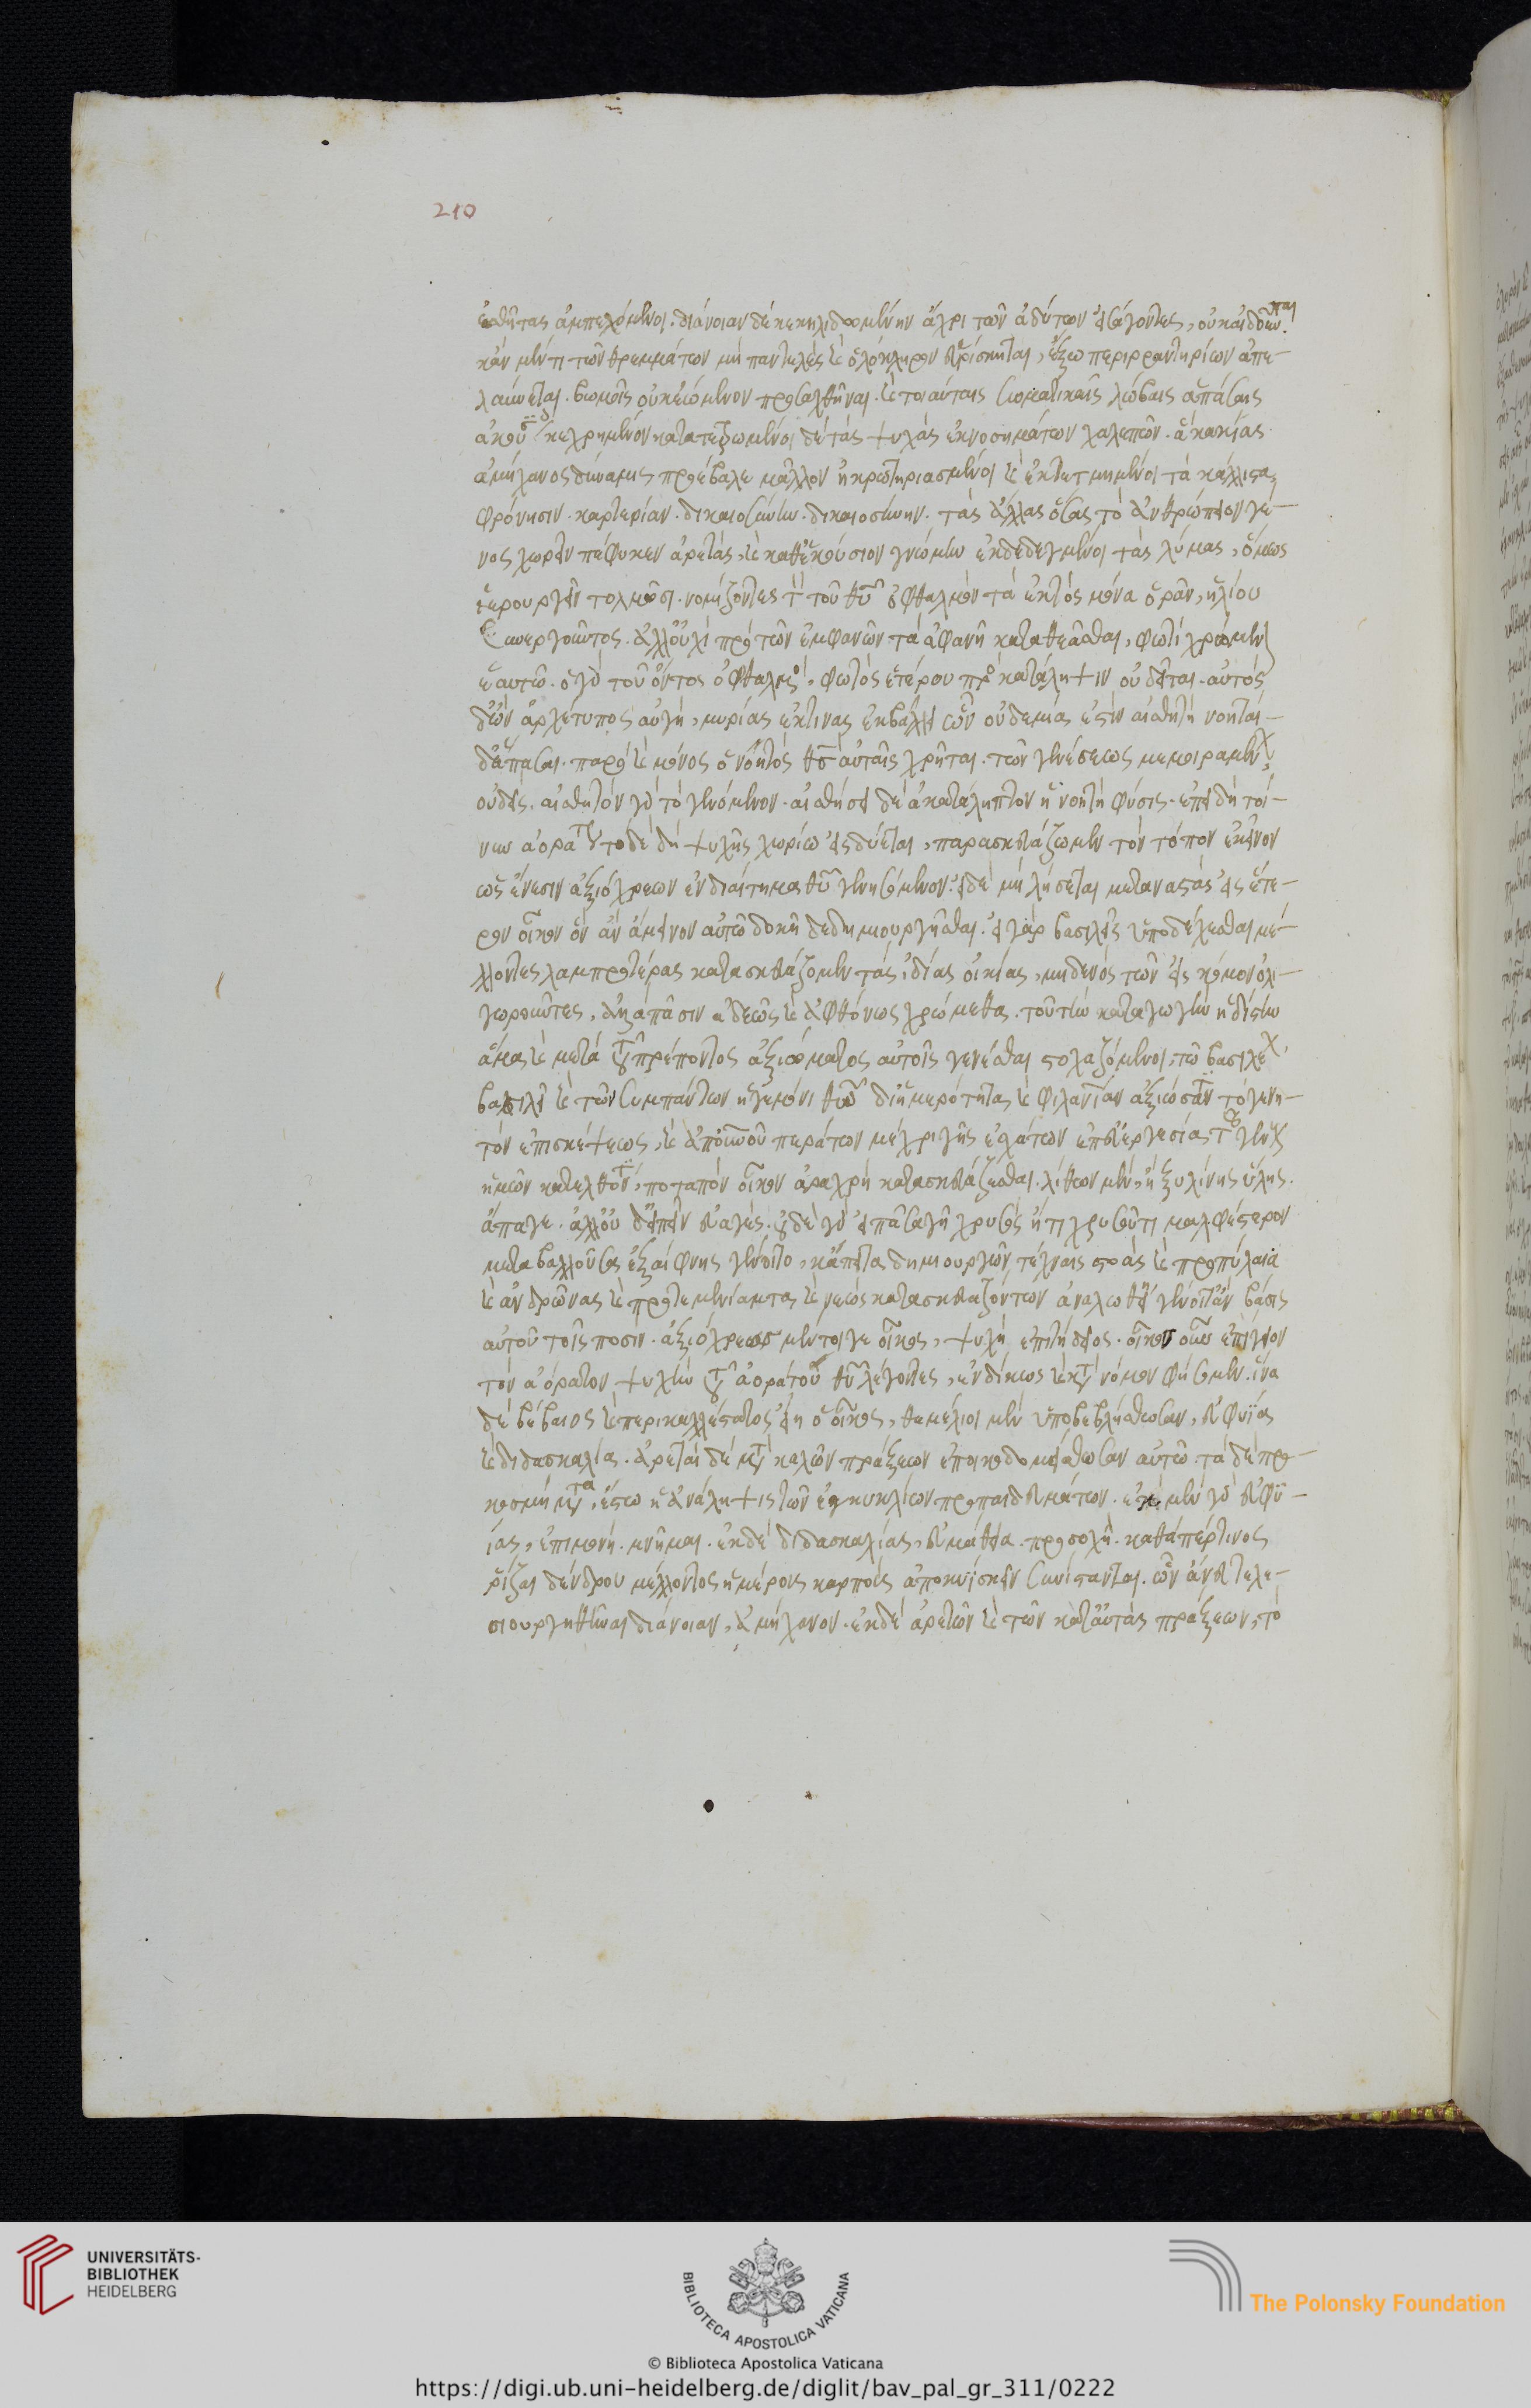 210
ἐσθῆτας ἀμπεχόμενοι. διάνοιαν δὲ κεκηλιδωμένην ἄχρι τῶν ἀδύτων εἰσάγοντες, οὐκ αἰδοῦνται.
κἂν μέν τι τῶν θρεμμάτων μὴ παντελὲς καὶ ὁλόκληρον εὑρίσκηται, ἔξω περιρραντηρίων ἀπε-
λαύνεται. βωμοῖς οὐκ ἐώμενον προσαχθῆναι. καὶ τοιαύταις σωματικαῖς λώβαις ἁπάσαις
κεχρημένον κατατετρωμένοι δὲ τὰς ψυχὰς ἐκ νοσημάτων χαλεπῶν. ἃ κακίας
ἀμήχανος δύναμις προσέβαλε μᾶλλον ἠκρωτηριασμένοι καὶ ἐκτετμημένοι τὰ κάλλιστα,
φρόνησιν. καρτερίαν. δικαιοσύνην. τὰς ἄλλας ὅσας τὸ ἀνθρώπειον γέ-
νος χωρεῖν πέφυκεν ἀρετάς, καὶ καθ' ἑκούσιον γνώμην ἐκδεδεγμένοι τὰς λύμας, ὅμως
ἱερουργεῖν τολμῶσι. νομίζοντες τὸν τοῦ θεοῦ ὀφθαλμὸν τὰ ἐκτὸς μόνα ὁρᾶν, ἡλίου
συνεργοῦντος. ἀλλ' οὐχὶ πρὸ τῶν ἐμφανῶν τὰ ἀφανῆ καταθεᾶσθαι, φωτὶ χρώμενον
ἑαυτῷ. ὁ γὰρ τοῦ ὄντος ὀφθαλμὸς, φωτὸς ἑτέρου πρὸς κατάληψιν οὐ δεῖται. αὐτὸς
δ' ὢν ἀρχέτυπος αὐγὴ, μυρίας ἀκτῖνας ἐκβάλλει ὧν οὐδεμία ἐστὶν αἰσθητὴ νοηταὶ
δ' ἅπασαι. παρὸ καὶ μόνος ὁ νοητὸς θεὸς αὐταῖς χρῆται. τῶν γενέσεως μεμοιραμένων
οὐδείς. αἰσθητὸν γὰρ τὸ γενόμενον. αἰσθήσει δὲ ἀκατάληπτον ἡ νοητὴ φύσις. ἐπειδὴ τοί-
νυν ἀοράτως τόδε δὴ ψυχῆς χωρίῳ εἰσδύεται, παρασκευάζωμεν τὸν τόπον ἐκεῖνον
ὡς ἔνεστιν ἀξιόχρεων ἐνδιαίτημα θεοῦ γενησόμενον. εἰ δὲ μὴ λήσεται μεταναστὰς εἰς ἕτε-
ρον οἶκον ὃν ἂν ἄμεινον αὐτῷ δοκῇ δεδημιουργῆσθαι. εἰ γὰρ βασιλεῖς ὑποδέχεσθαι μέ-
λλοντες λαμπροτέρας κατασκευάζομεν τὰς ἰδίας οἰκίας, μηδενὸς τῶν εἰς κόσμον ὀλι-
γωροῦντες, ἀλλὰ πᾶσιν ἀδεῶς καὶ ἀφθόνως χρώμεθα. τοῦ τὴν καταγωγὴν ἡδίστην
ἅμα καὶ μετὰ τοῦ πρέποντος ἀξιώματος αὐτοῖς γενέσθαι στοχαζόμενοι, τῷ βασιλέων
βασιλεῖ καὶ τῶν συμπάντων ἡγεμόνι θεῷ δι' ἡμερότητα καὶ φιλανθρωπίαν ἀξιώσαντι τὸ γενη-
τὸν ἐπισκέψεως, καὶ ἀπ' οὐρανοῦ περάτων μέχρι γῆς ἐσχάτων ἐπ' εὐεργεσίᾳ τοῦ γένους
ἡμῶν κατελθόντι, ποταπὸν οἶκον ἆρα χρὴ κατασκευάζεσθαι. λίθων μὲν, ἢ ξυλίνης ὕλης.
ἄπαγε. ἀλλ' οὐδ' εἰπεῖν εὐαγές. οὐδὲ γὰρ εἰ πᾶσα γῆ χρυσὸς ἤ τι χρυσοῦ τιμαλφέστερον
μεταβαλοῦσα ἐξαίφνης γένοιτο, κἄπειτα δημιουργῶν τέχναις στοὰς καὶ προπύλαια
καὶ ἀνδρῶνας καὶ προτεμενίσματα καὶ νεὼς κατασκευαζόντων ἀναλωθείη γένοιτ' ἂν βάσις
αὐτοῦ τοῖς ποσίν. ἀξιόχρεως μέντοι γε οἶκος, ψυχὴ ἐπιτήδειος. οἶκον οὖν ἐπίγειον
τὸν ἀόρατον ψυχὴν τοῦ ἀοράτου θεοῦ λέγοντες, ἐνδίκως καὶ κατὰ νόμον φήσομεν. ἵνα
δὲ βέβαιος καὶ περικαλλέστατος εἴη ὁ οἶκος, θεμέλιοι μὲν ὑποβεβλήσθωσαν, εὐφυΐα
καὶ διδασκαλία. ἀρεταὶ δὲ μετὰ καλῶν πράξεων ἐποικοδομείσθωσαν αὐτῷ. τὰ δὲ προ-
κοσμήματα, ἔστω ἡ ἀνάληψις τῶν ἐγκυκλίων προπαιδευμάτων. ἐκ μὲν γὰρ εὐφυ-
ΐας, ἐπιμονή. μνῆμαι. ἐκ δὲ διδασκαλίας, εὐμάθεια. προσοχή. καθάπερ τινὸς
ῥίζαι δένδρου μέλλοντος ἡμέρους καρποὺς ἀποκυΐσκειν συνίστανται. ὧν ἄνευ τελε-
σιουργηθῆναι διάνοιαν, ἀμήχανον. ἐκ δὲ ἀρετῶν καὶ τῶν κατ' αὐτὰς πράξεων, τὸ
UNIVERSITÄTS-
BIBLIOTHEK
HEIDELBERG
BIBLIOTECA APOSTOLICA VATICANA
The Polonsky Foundation
© Biblioteca Apostolica Vaticana
https://digi.ub.uni-heidelberg.de/diglit/bav_pal_gr_311/0222